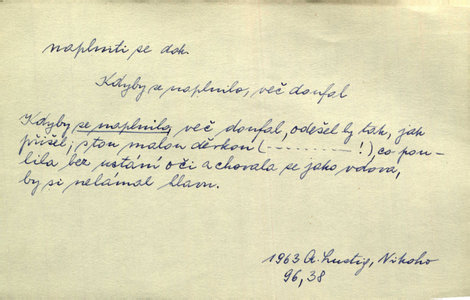 naplniti se dok.
Kdyby se naplnilo, več doufal
Kdyby se naplnilo več doufal, odešel by tak, jak
přišel, s tou malou děvkou (----------!) co pou-
lila bez ustání oči a chovala se jako vdova,
by si nelámal hlavu.
1963 A. Lustig, Nikoho
96, 38